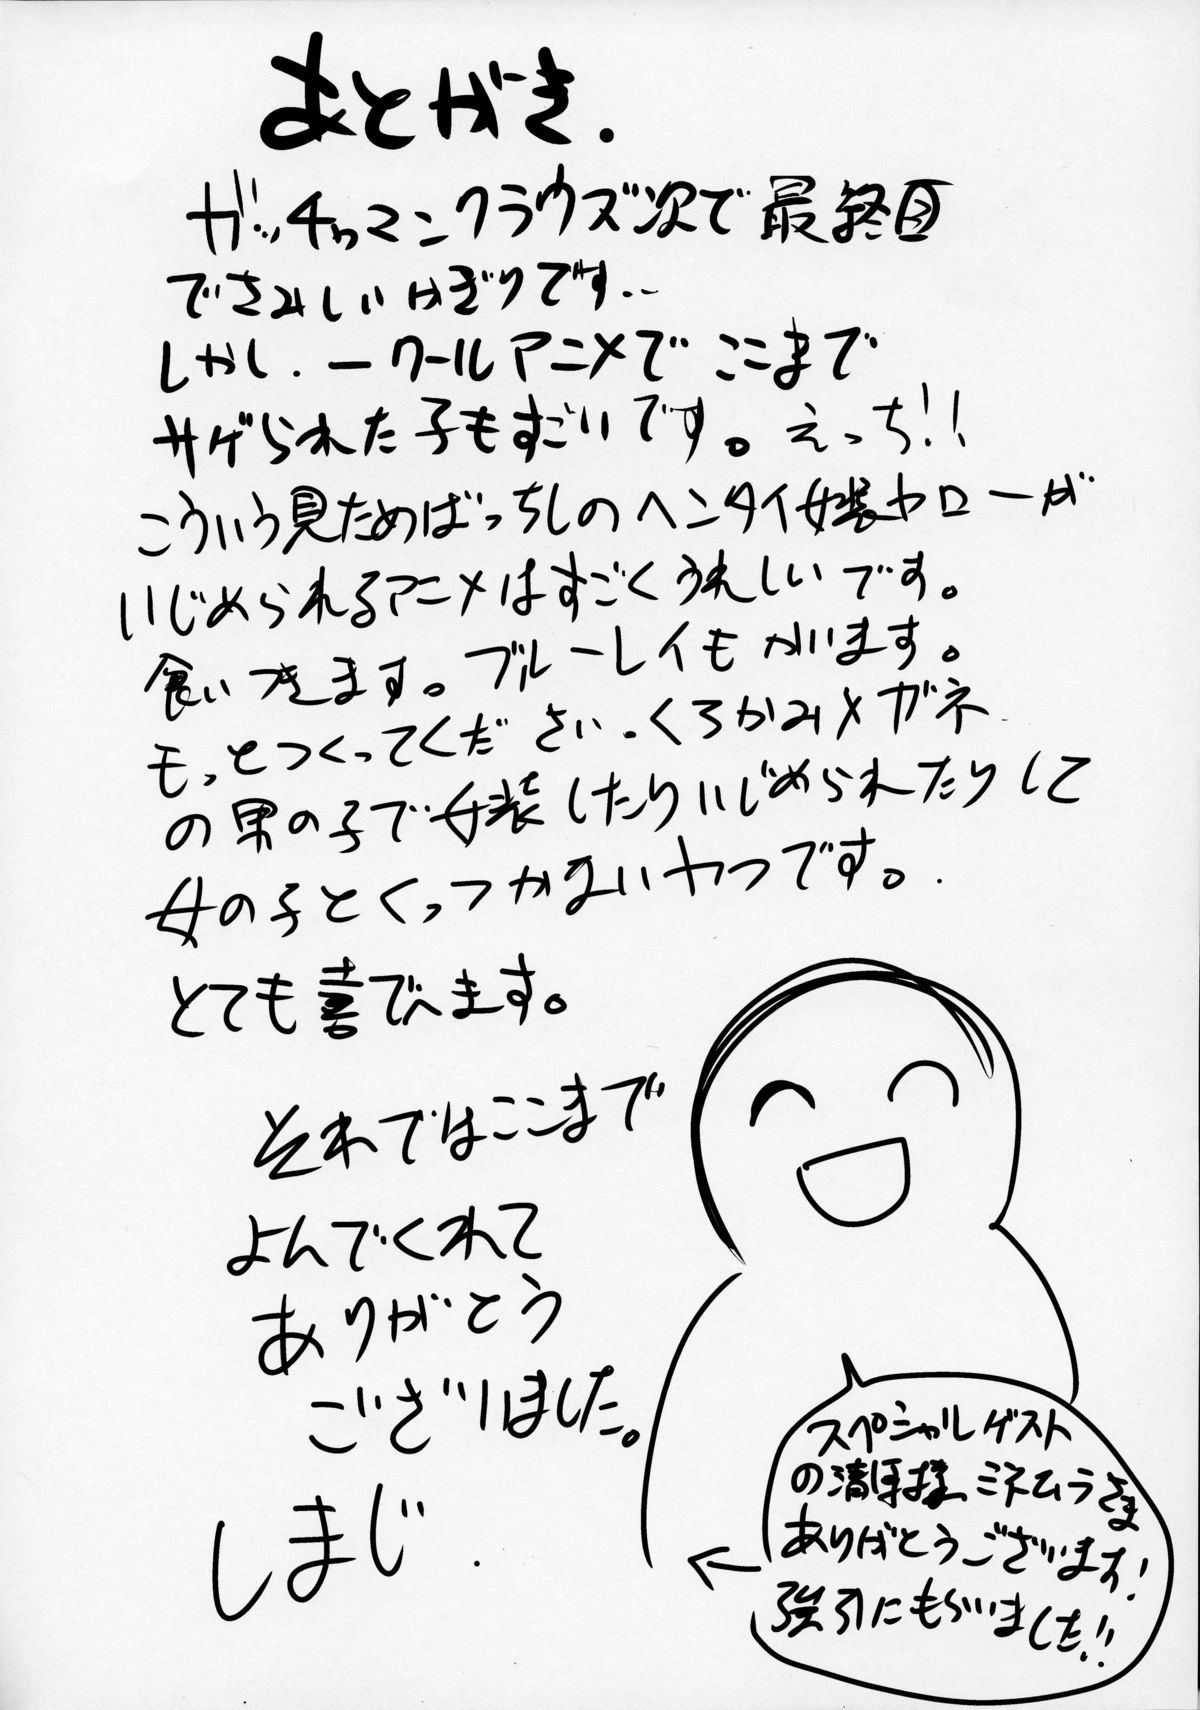 あとがき.
ガッチャマンクラウズ次で最終回
でさみしいかぎりです..
しかし.一クールアニメでここまで
サゲられた子もすごいです。えっち!!
こういう見ためばっちしのヘンタイ女装ヤローが
いじめられるアニメはすごくうれしいです。
食いつきます。ブルーレイもかいます。
もっとつくってください.くろかみメガネ
の男の子で女装したりいじめられたりして
女の子とくっつかないやつです。.
とても喜びます。
それではここまで
よんでくれて
ありがとう
ございました。
しまじ.
スペシャルゲスト
の清ほ様、ミネムラさま
ありがとうございます!
強引にもらいました!!